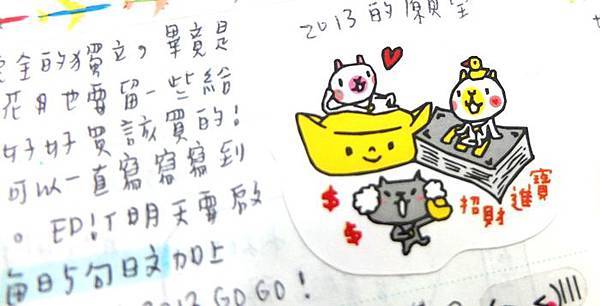 2013的願望
全的獨立，畢竟是
花月也要留一些給
好好買該買的！
可以一直寫寫寫到
。EP!T明天要啟
每日5句日文加上
2013 GO GO！
$ $
招財進寶